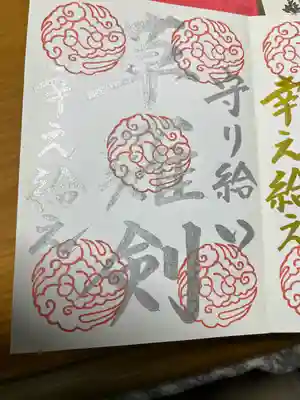 幸え給え
守り給い
草薙剣
幸え給え